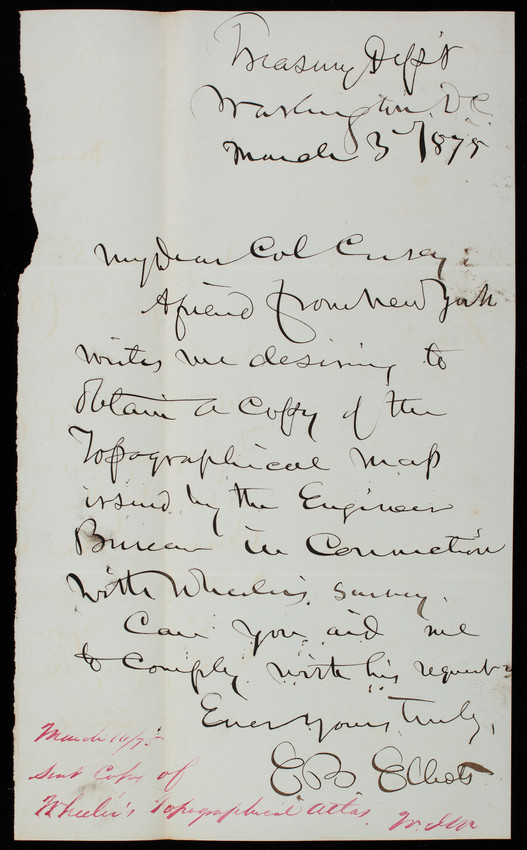 Treasury Dep't
Washington, D.C.
March 3 1875
My Dear Col Casey:
A friend from New York
writes me desiring to
obtain a copy of the
Topographical Map
issued by the Engineer
Bureau in Connection
with Wheeler's survey.
Can you aid me
to comply with his request?
Ever yours truly,
E B Elliott
March 10/75
Sent Copy of
Wheeler's Topographical Atlas.